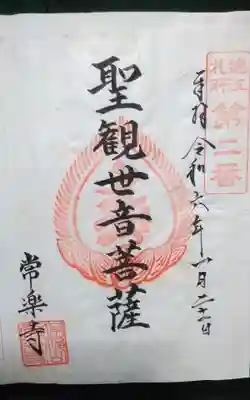 奉拝 令和六年六月二十一日
第二番
札所
聖観世音菩薩
常楽寺